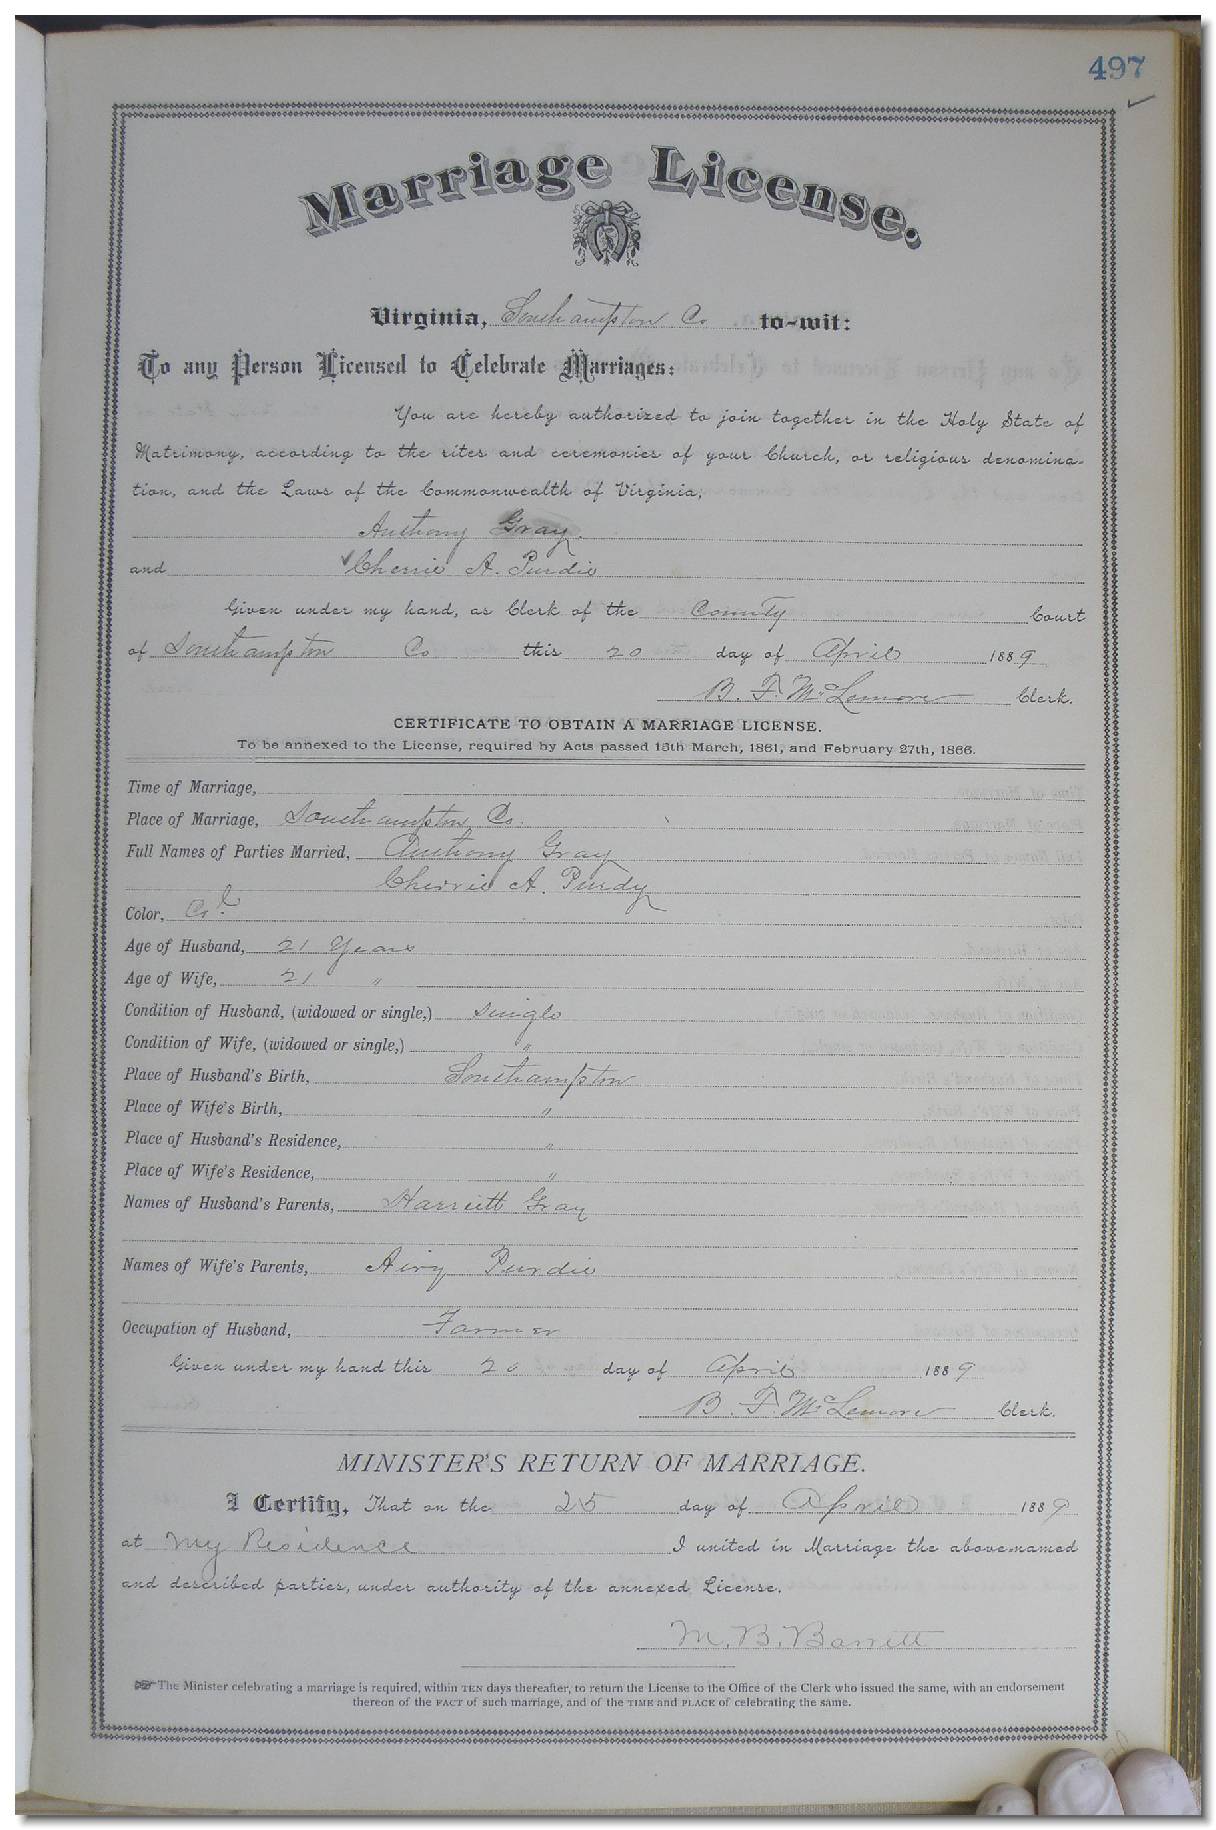 497
Marriage License.
Virginia, Southampton Co to-wit:
To any Person Licensed to Celebrate Marriages:
You are hereby authorized to join together in the Holy State of
Matrimony, according to the rites and ceremonies of your Church, or religious denomina-
tion, and the Laws of the Commonwealth of Virginia,
Anthony Gray.
and Cherrie A. Purdie
Given under my hand, as Clerk of the County Court
of Southampton Co this 20 day of April 1889
B. F. McLemore Clerk.
CERTIFICATE TO OBTAIN A MARRIAGE LICENSE.
To be annexed to the License, required by Acts passed 15th March, 1861, and February 27th, 1866.
Time of Marriage,
Place of Marriage, Southampton Co.
Full Names of Parties Married, Anthony Gray
Cherrie A. Purdy
Color, Col.
Age of Husband, 21 Years
Age of Wife, 21 "
Condition of Husband, (widowed or single,) single
Condition of Wife, (widowed or single,) "
Place of Husband's Birth, Southampton
Place of Wife's Birth, "
Place of Husband's Residence, "
Place of Wife's Residence, "
Names of Husband's Parents, Harriett Gray
Names of Wife's Parents, Airy Purdie
Occupation of Husband, Farmer
Given under my hand this 20 day of April 1889
B. F. McLemore Clerk.
MINISTER'S RETURN OF MARRIAGE.
I Certify, That on the 25 day of April 1889
at My Residence I united in Marriage the above-named
and described parties, under authority of the annexed License.
M. B. Barrett
The Minister celebrating a marriage is required, within TEN days thereafter, to return the License to the Office of the Clerk who issued the same, with an endorsement
thereon of the FACT of such marriage, and of the TIME and PLACE of celebrating the same.